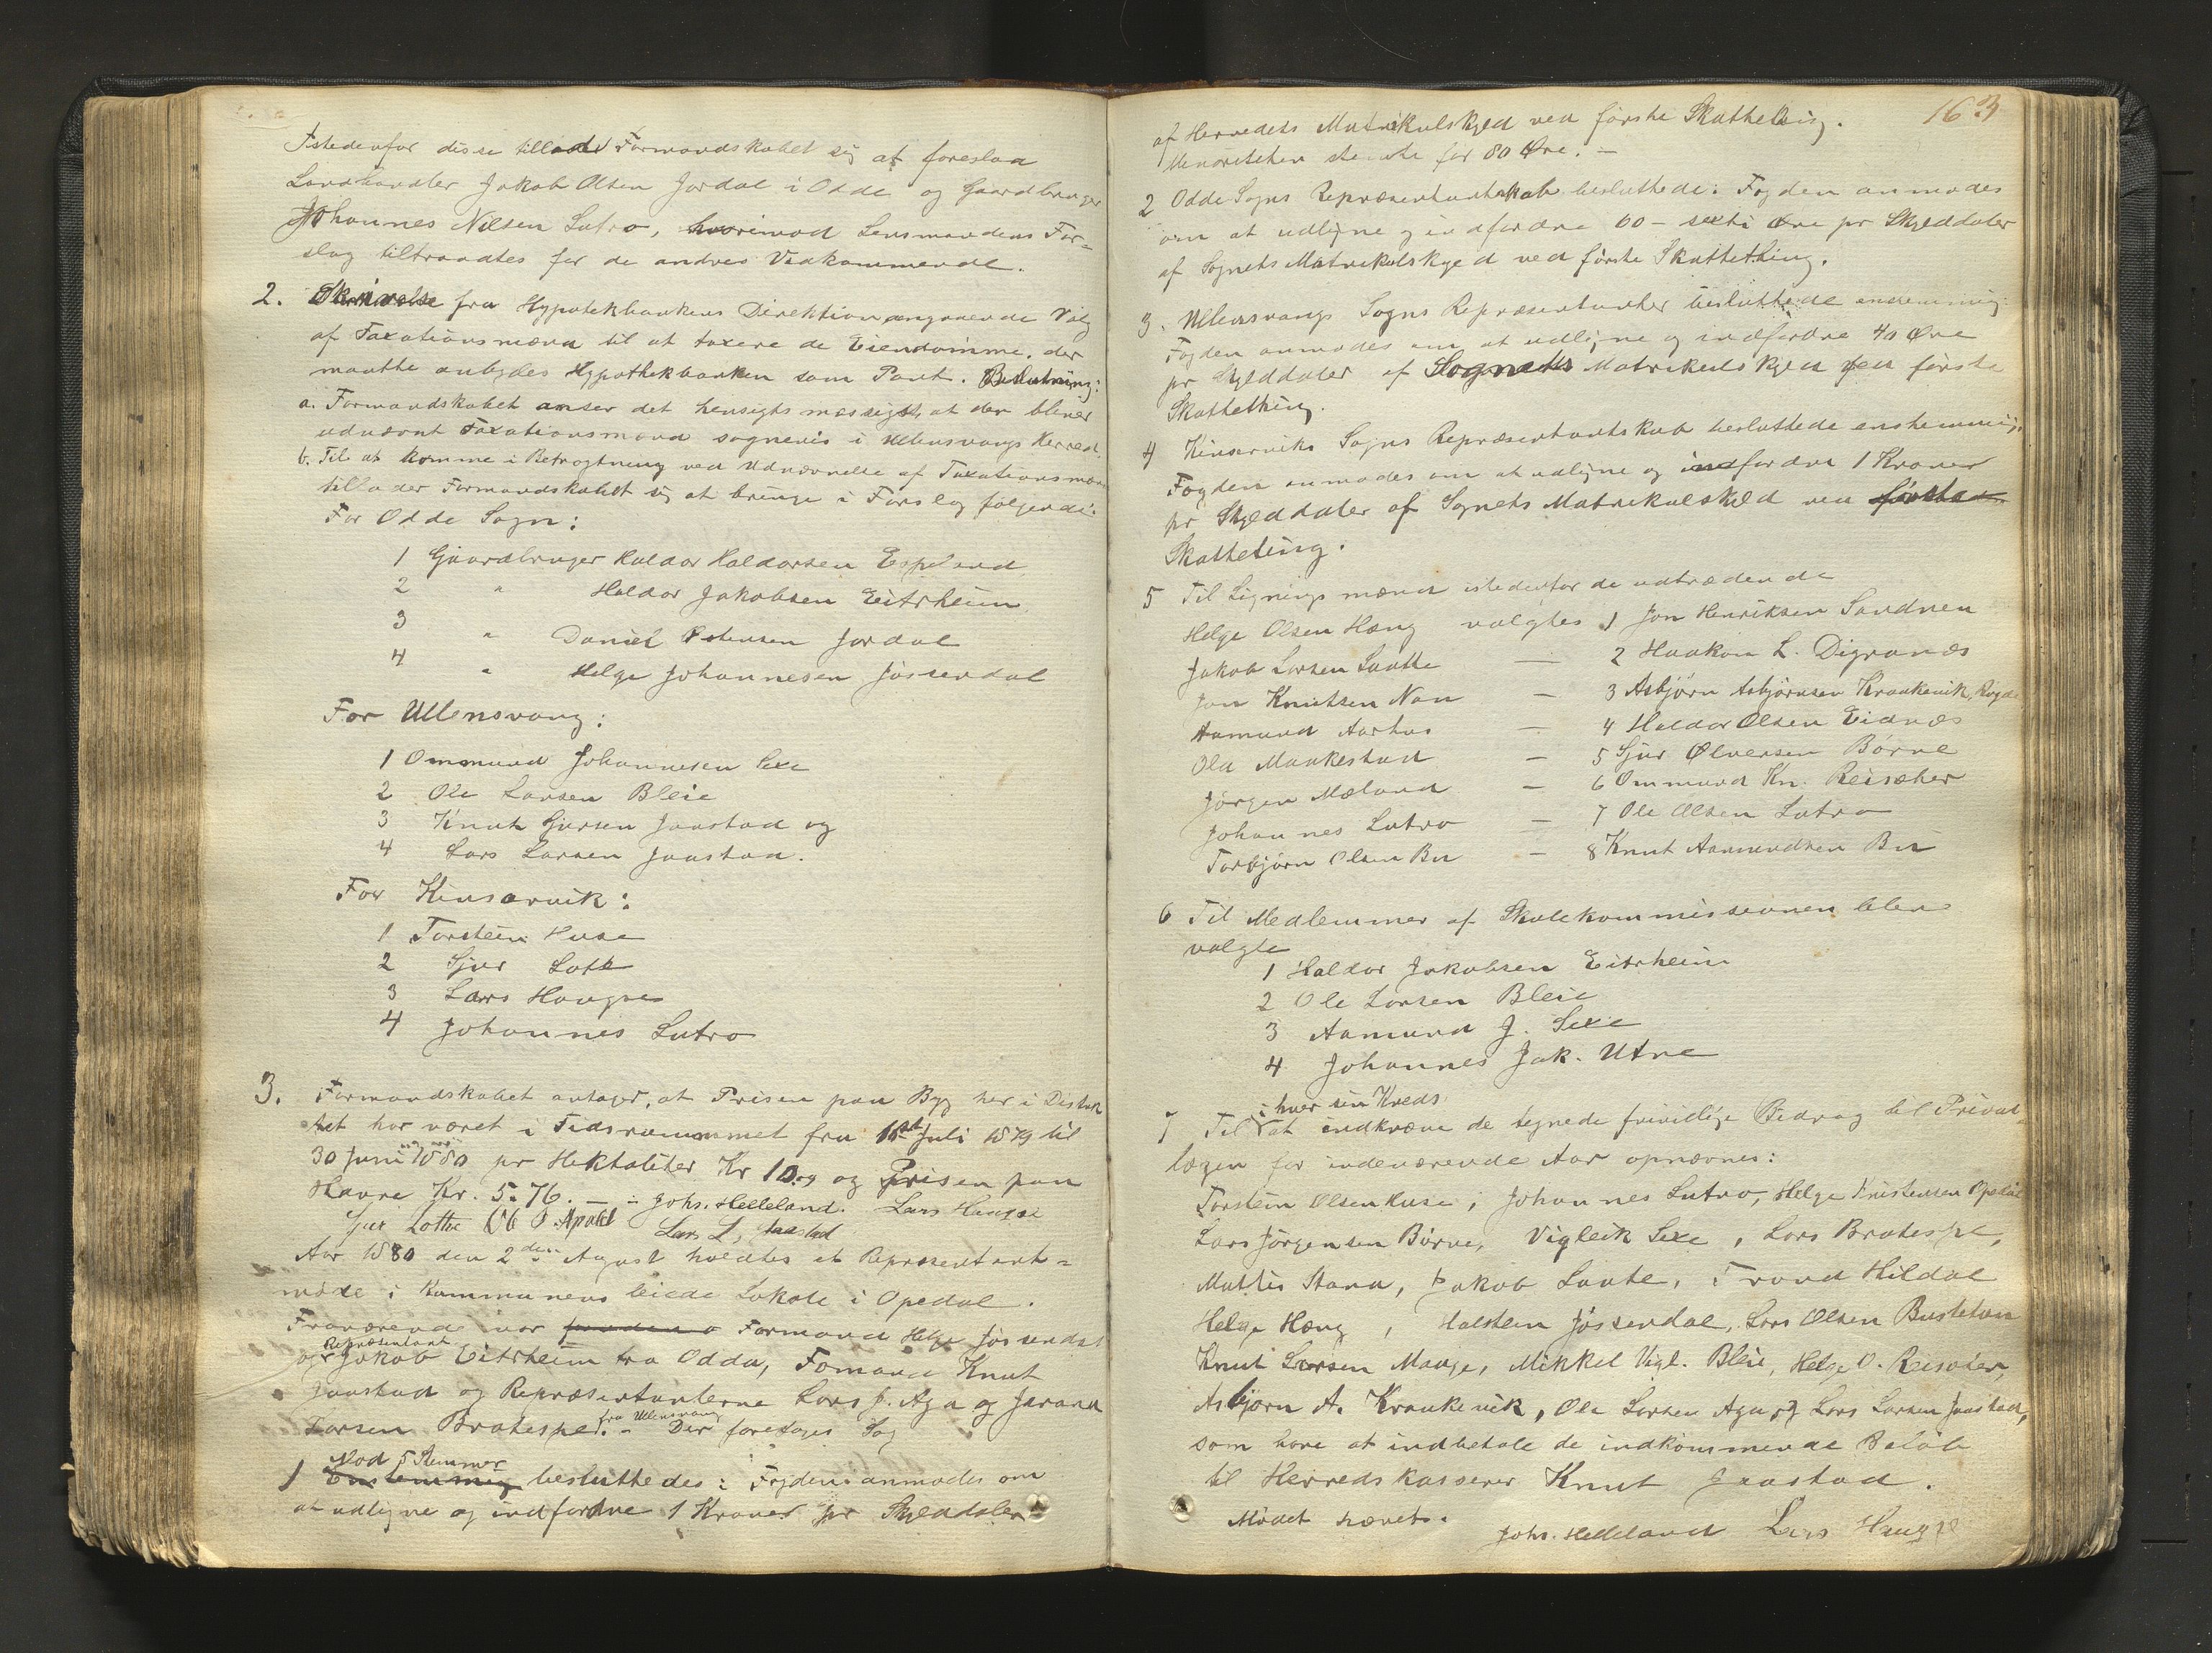 Istedenfor disse tillader Formandskabet sig at foreslaa
Landhandler Jakob Olsen Jordal i Odde og Gaardbruger
Johannes Nilsen Lutro, hvorimod Lensmandens For-
slag tiltraadtes for de andres Vedkommende.
2. Skrivelse fra Hypothekbankens Direktion angaaende Valg
af Taxationsmænd til at taxere de Eiendomme, der
maatte anbydes Hypothekbanken som Pant. Beslutning:
a. Formandskabet anser det hensigtsmæssigst, at der bliver
udnævnt Taxationsmænd sognevis i Ullensvangs Herred.
b. Til at komme i Betragtning ved Udnævnelse af Taxationsmænd
tillader Formandskabet sig at bringe i Forslag følgende:
For Odde Sogn:
1 Gaardbruger Haldor Haldorsen Espeland
2 " Haldor Jakobsen Eitrheim
3 " Daniel Østensen Jordal
4 " Helge Johannesen Jøssendal
For Ullensvang:
1 Ommund Johannesen Sexe
2 Ole Larsen Bleie
3 Knut Gjersen Jaastad og
4 Lars Larsen Jaastad.
For Kinsarvik:
1 Torstein Huse
2 Sjur Lothe
3 Lars Haugse
4 Johannes Lutro
3. Formandskabet antager, at Prisen paa Byg her i Distrik
tet har været i Tidsrummet fra 1st Juli 1879 til
30 Juni 1880 pr Hektoliter Kr 10.09 og Prisen paa
Havre Kr. 5.76. — Johs. Helleland. Lars Haugse
Sjur Lothe O. Apold Lars L. Jaastad
Aar 1880 den 2den August holdtes et Repræsentant-
møde i Kommunens leiede Lokale i Opedal.
Fraværende var Formand Helge Jøssendal
og Repræsentant Jakob Eitrheim fra Odda, Fomand Knut
Jaastad og Repræsentanterne Lars J. Aga og Jarand
Larsen Bratespe fra Ullensvang. - Der foretages Sag
1 Enstemmig Mod 5 Stemmer besluttedes: Fogden anmodes om
at udligne og indfordre 1 Kroner pr Skylddaler
163
af Herredets Matrikulskyld ved første Skattething.
Minoriteten stemte for 80 Øre. —
2 Odde Sogns Repræsentantskab besluttede: Fogden anmodes
om at udligne og indfordre 60 - sexti Øre pr Skylddaler
af Sognets Matrikulskyld ved første Skattething.
3. Ullensvangs Sogns Repræsentanter besluttede enstemmig:
Fogden anmodes om at udligne og indfordre 40 Øre
pr Skylddaler af Sognets Matrikulskyld ved første
Skattething.
4 Kinserviks Sogns Repræsentantskab besluttede enstemmig:
Fogden anmodes om at udligne og indfordre 1 Kroner
pr Skylddaler af Sognets Matrikulskyld ved første
Skatteting.
5 Til Ligningsmænd istedenfor de udtrædende
Helge Olsen Hæng valgtes 1 Jon Henriksen Sandnen
Jakob Larsen Lauthe — 2 Haakon L. Digranæs
Jon Knutsen Nan — 3 Asbjørn Asbjørnsen Kraakevik, Rogde
Aamund Aarhus — 4 Haldor Olsen Eidnæs
Ola Maakestad — 5 Sjur Ølversen Børve
Jørgen Mæland — 6 Ommund Kn. Reisæter
Johannes Lutro — 7 Ole Olsen Lutro
Torbjørn Olsen Bu — 8 Knut Aamundsen Bu
6 Til Medlemmer af Skolekommissionen blev
valgte
1 Haldor Jakobsen Eitrheim
2 Ole Larsen Bleie
3 Aamund J. Sexe
4 Johannes Jak. Utne
7 Til i hver sin Kreds at indkræve de tegnede frivillige Bidrag til Privat-
lægen for indeværende Aar opnævnes:
Torstein Olsen Huse, Johannes Lutro, Helge Kristensen Opedal
Lars Jørgensen Børve, Vigleik Sexe, Lars Bratespe,
Mattis Stana, Jakob Laute, Trond Hildal
Helge Hæng, Halsten Jøssendal, Lars Olsen Bustetun
Knut Larsen Mauge, Mikkel Vigl. Bleie, Helge O. Reisæter,
Asbjørn A. Kraakevik, Ole Larsen Aga og Lars Larsen Jaastad,
som have at indbetale de indkommende Beløb
til Herredskasserer Knut Jaastad.
Mødet hævet.
Johs. Helleland Lars Haugse